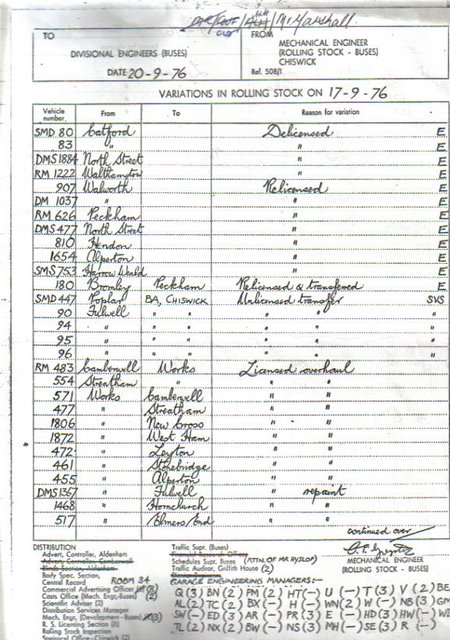 Mr Marshall
TO FROM
DIVISIONAL ENGINEERS (BUSES) MECHANICAL ENGINEER
(ROLLING STOCK - BUSES)
CHISWICK
DATE 20-9-76 Ref. 508/1
VARIATIONS IN ROLLING STOCK ON 17-9-76
Vehicle number From To Reason for variation
SMD 80 Catford Delicensed E
83 " " E
DMS 1884 North Street " E
RM 1222 Walthamstow " E
907 Walworth Relicensed E
DM 1037 " " E
RM 626 Peckham " E
DMS 477 North Street " E
810 Hendon " E
1654 Alperton " E
SMS 753 Harrow Weald " E
180 Bromley Peckham Relicensed & transferred E
SMD 447 Poplar BA, CHISWICK Unlicensed transfer SVS
90 Fulwell " " " " "
94 " " " " " "
95 " " " " " "
96 " " " " " "
RM 483 Camberwell Works Licensed overhaul
554 Streatham " " "
571 Works Camberwell " "
477 " Streatham " "
1806 " New Cross " "
1872 " West Ham " "
472 " Leyton " "
461 " Stonebridge " "
455 " Alperton " "
DMS 1367 " Fulwell " repaint
1468 " Hornchurch " "
517 " Elmers End " "
continued over
DISTRIBUTION
Advert, Controller, Aldenham
Advert, Controller, Camberwell
Body Spec, Section,
Central Record ROOM 34
Commercial Advertising Officer
Costs Office (Mech. Engr, Buses) (2)
Scientific Adviser (2)
Distribution Services Manager
R. S. Licensing Section
Rolling Stock Inspection
Statistical Office
Traffic Supt. (Buses)
Schedules Supt. (Buses) (ATTN OF MR HYSLOP)
Traffic Auditor, Griffith House (2)
MECHANICAL ENGINEER
(ROLLING STOCK - BUSES)
GARAGE ENGINEERING MANAGERS:-
Q (3) BN (2) PM (2) HT (-) U (-) T (3) V (2)
AL (2) TC (2) BX (-) H (-) WN (2) W (-) NB (3)
SW (-) ED (3) AR (-) PR (3) E (-) HD (3) HW (-)
TL (2) NX (2) BW (-) NS (3) MH (-) SE (3) R (-)